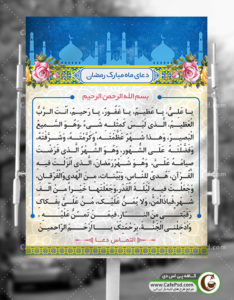 دعای ماه مبارک رمضان
بسم الله الرحمن الرحیم
یا عَلِیُّ یا عَظیمُ، یا غَفُورُ، یا رَحیمُ، اَنْتَ الرَّبُّ
الْعَظیمُ الَّذی لَیْسَ کَمِثْلِهِ شَیءٌ، وَهُوَ السَّمیعُ
الْبَصیرُ، وَهذا شَهْرٌ عَظَّمْتَهُ، وَکَرَّمْتَهُ، وَشَرَّفْتَهُ،
وَفَضَّلْتَهُ عَلَی الشُّهُورِ، وَهُوَ الشَّهْرُ الَّذی فَرَضْتَ
صِیامَهُ عَلَیَّ، وَهُوَ شَهْرُ رَمَضانَ الَّذی اَنْزَلْتَ فیهِ
الْقُرْآنَ، هُدیً لِلنّاسِ، وَبَیِّناتٍ مِنَ الْهُدی وَالْفُرْقانِ،
وَجَعَلْتَ فیهِ لَیْلَةَ الْقَدْرِ، وَجَعَلْتَها خَیْراً مِنْ اَلْفِ
شَهْرٍ، فَیا ذَا الْمَنِّ، وَلا یُمَنُّ عَلَیْکَ، مُنَّ عَلَیَّ بِفَکاکِ
رَقَبَتی مِنَ النّارِ، فیمَنْ تَمُنُّ عَلَیْهِ،
وَاَدْخِلْنِی الْجَنَّةَ، بِرَحْمَتِکَ یا اَرْحَمَ الرّاحِمینَ
التماس دعا
کافه پی اس دی
www.CafePsd.com